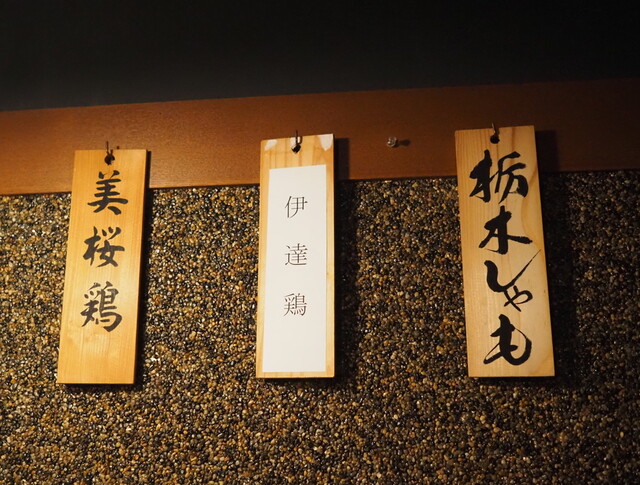 栃木しゃも
伊達鶏
美桜鶏